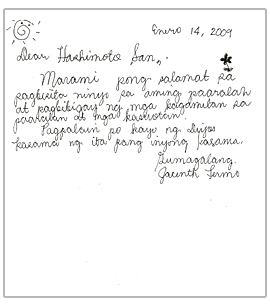 Enero 14, 2009
Dear Hashimoto San,
Marami pong salamat sa
pagbisita ninyo sa aming paaralan
at pagbibigay ng mga kagamitan sa
paaralan at mga kasuotan.
Pagpalain po kayo ng Diyos
kasama ng iba pang inyong kasama.
Gumagalang,
Jacinth Fermo